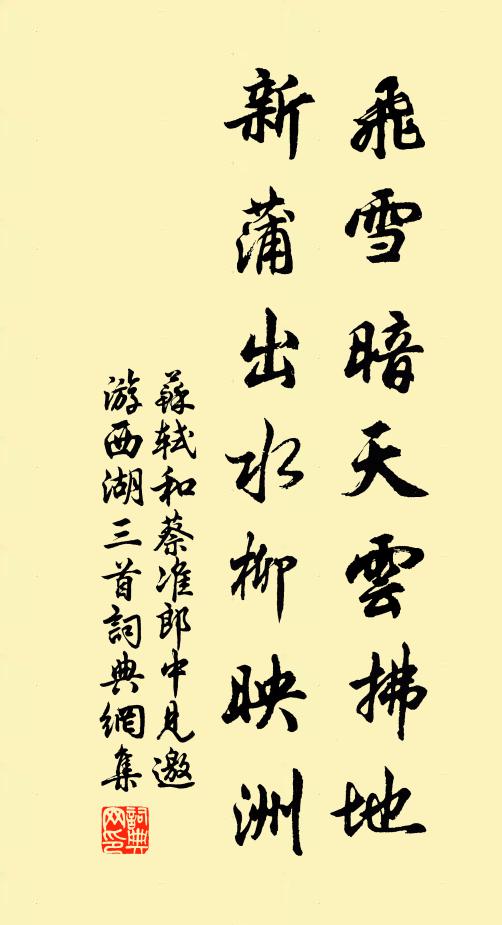 飛雪暗天雲拂地
新蒲出水柳映洲
蘇軾和蔡准郎中見邀
游西湖三首詞典網集
詞典
网印